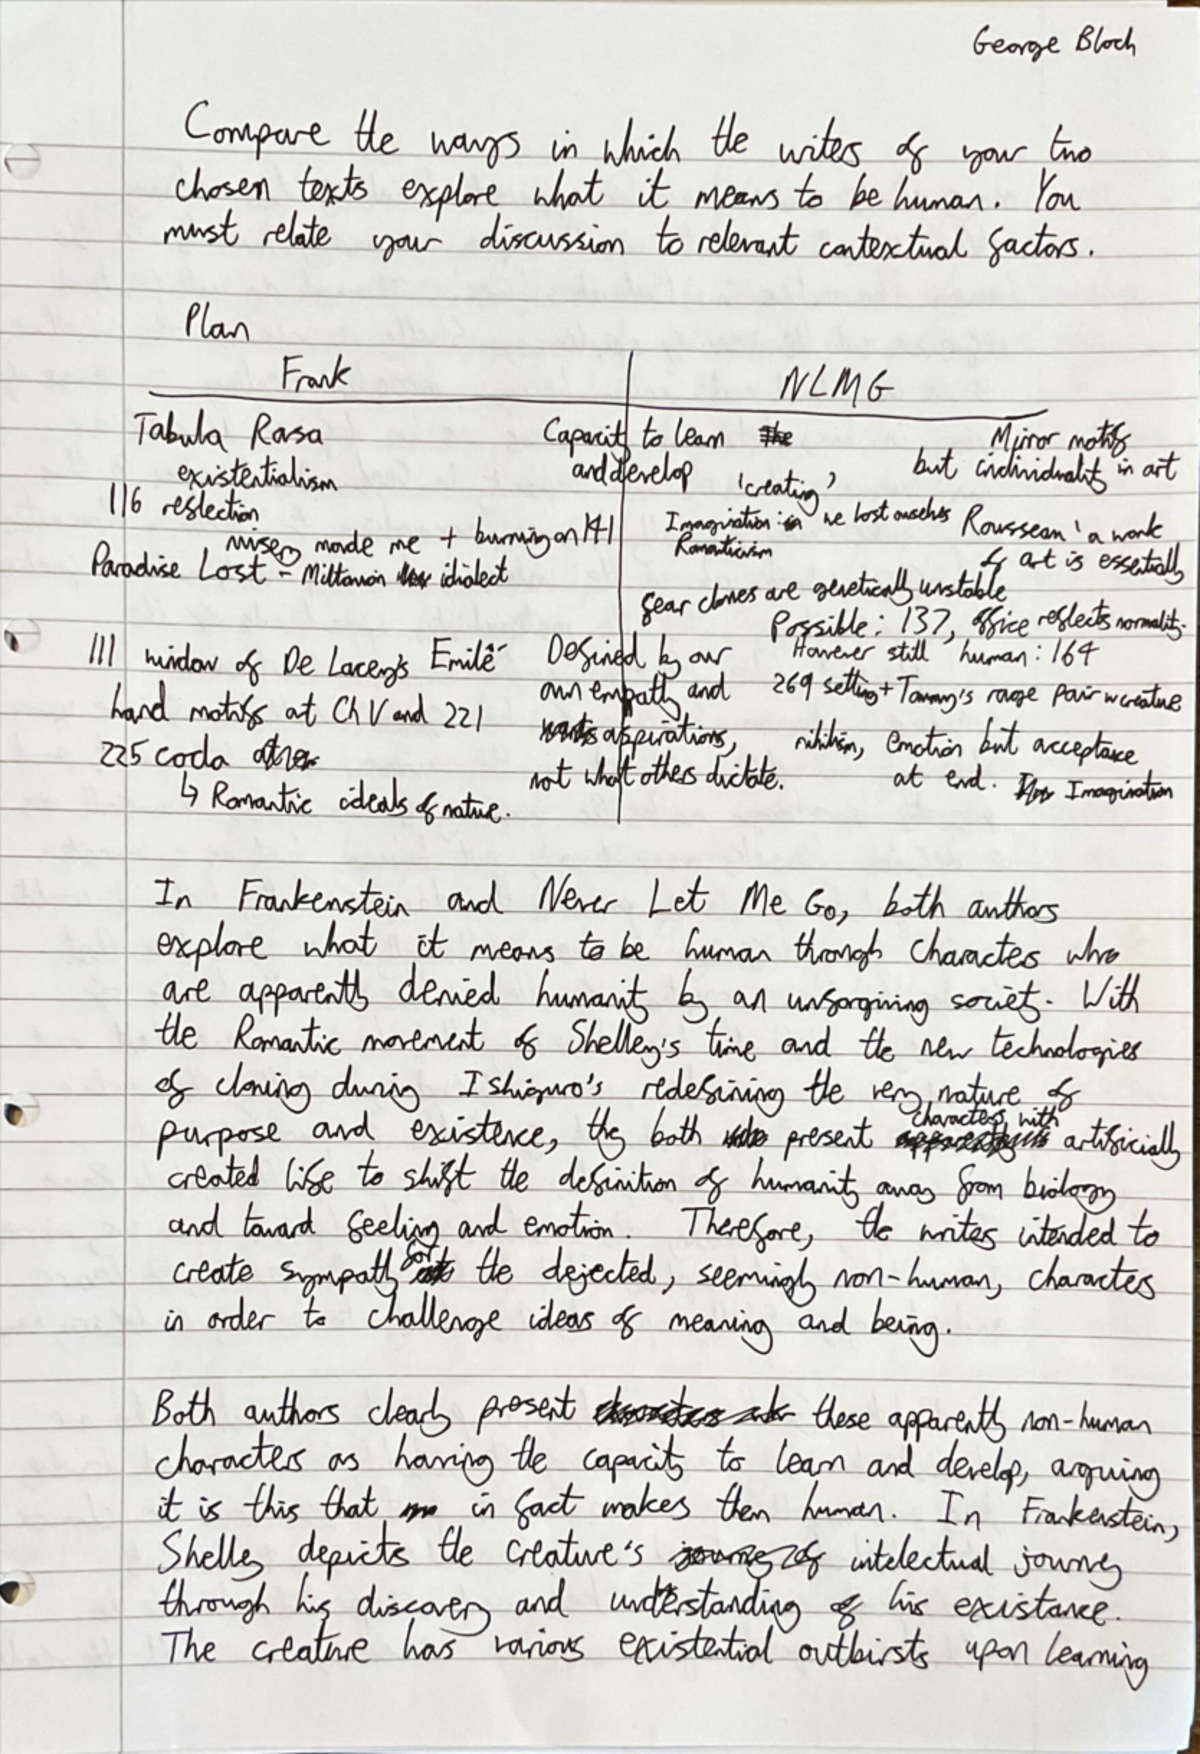 George Bloch
Compare the ways in which the writers of your two
chosen texts explore what it means to be human. You
must relate your discussion to relevant contextual factors.
Plan
Frank
NLMG
Tabula Rasa
existentialism
116 reflection
misery made me + burning on 141
Paradise Lost - Miltonian idiolect
111 window of De Lacey's Emilé
hand motifs at Ch V and 221
225 coda
↳ Romantic ideals of nature.
Capacity to learn
and develop
'creating'
Mirror motifs
but individuality in art
Imagination: we lost ourselves
Romanticism
Rousseau 'a work
of art is essentially
fear clones are genetically unstable
Possible: 137, office reflects normality.
However still human: 164
Defined by our
own empathy and
aspirations,
not what others dictate.
269 setting + Tommy's rage pair w creature
nihilism, emotion but acceptance
at end. Imagination
In Frankenstein and Never Let Me Go, both authors
explore what it means to be human through characters who
are apparently denied humanity by an unforgiving society. With
the Romantic movement of Shelley's time and the new technologies
of cloning during Ishiguro's redefining the very nature of
purpose and existence, they both present characters with artificially
created life to shift the definition of humanity away from biology
and toward feeling and emotion. Therefore, the writers intended to
create sympathy for the dejected, seemingly non-human, characters
in order to challenge ideas of meaning and being.
Both authors clearly present these apparently non-human
characters as having the capacity to learn and develop, arguing
it is this that in fact makes them human. In Frankenstein,
Shelley depicts the creature's intelectual journey
through his discovery and understanding of his existance.
The creature has various existential outbirsts upon learning